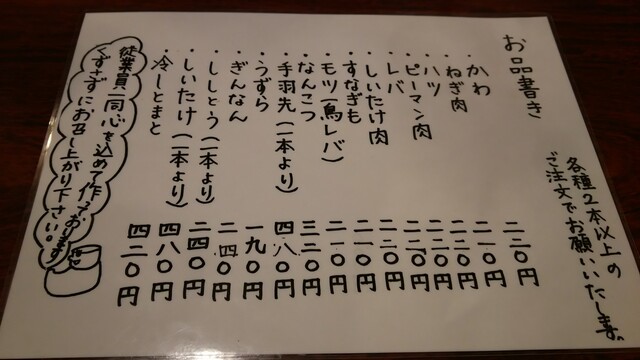 各種2本以上の
ご注文でお願いいたします。
お品書き
・かわ 二二〇円
・ねぎ肉 二一〇円
・ハツ 二二〇円
・ピーマン肉 二二〇円
・レバ 二二〇円
・しいたけ肉 二二〇円
・すなぎも 二一〇円
・モツ(鳥レバ) 二一〇円
・なんこつ 三二〇円
・手羽先(一本より) 四八〇円
・うずら 一九〇円
・ぎんなん 二四〇円
・ししとう(一本より) 二四〇円
・しいたけ(一本より) 四八〇円
・冷しとまと 四二〇円
従業員一同心を込めて作っております
くずさずにお召し上がり下さい。